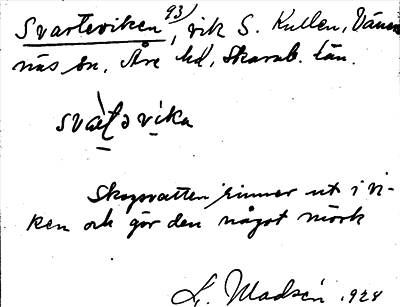 Svarteviken 93), vik S. Kullen, Väners-
näs sn, Åse hd, Skarab. län.
svat̯ə vika
Skogsvatten rinner ut i vi-
ken och gör den något mörk
L. Madsén 1928